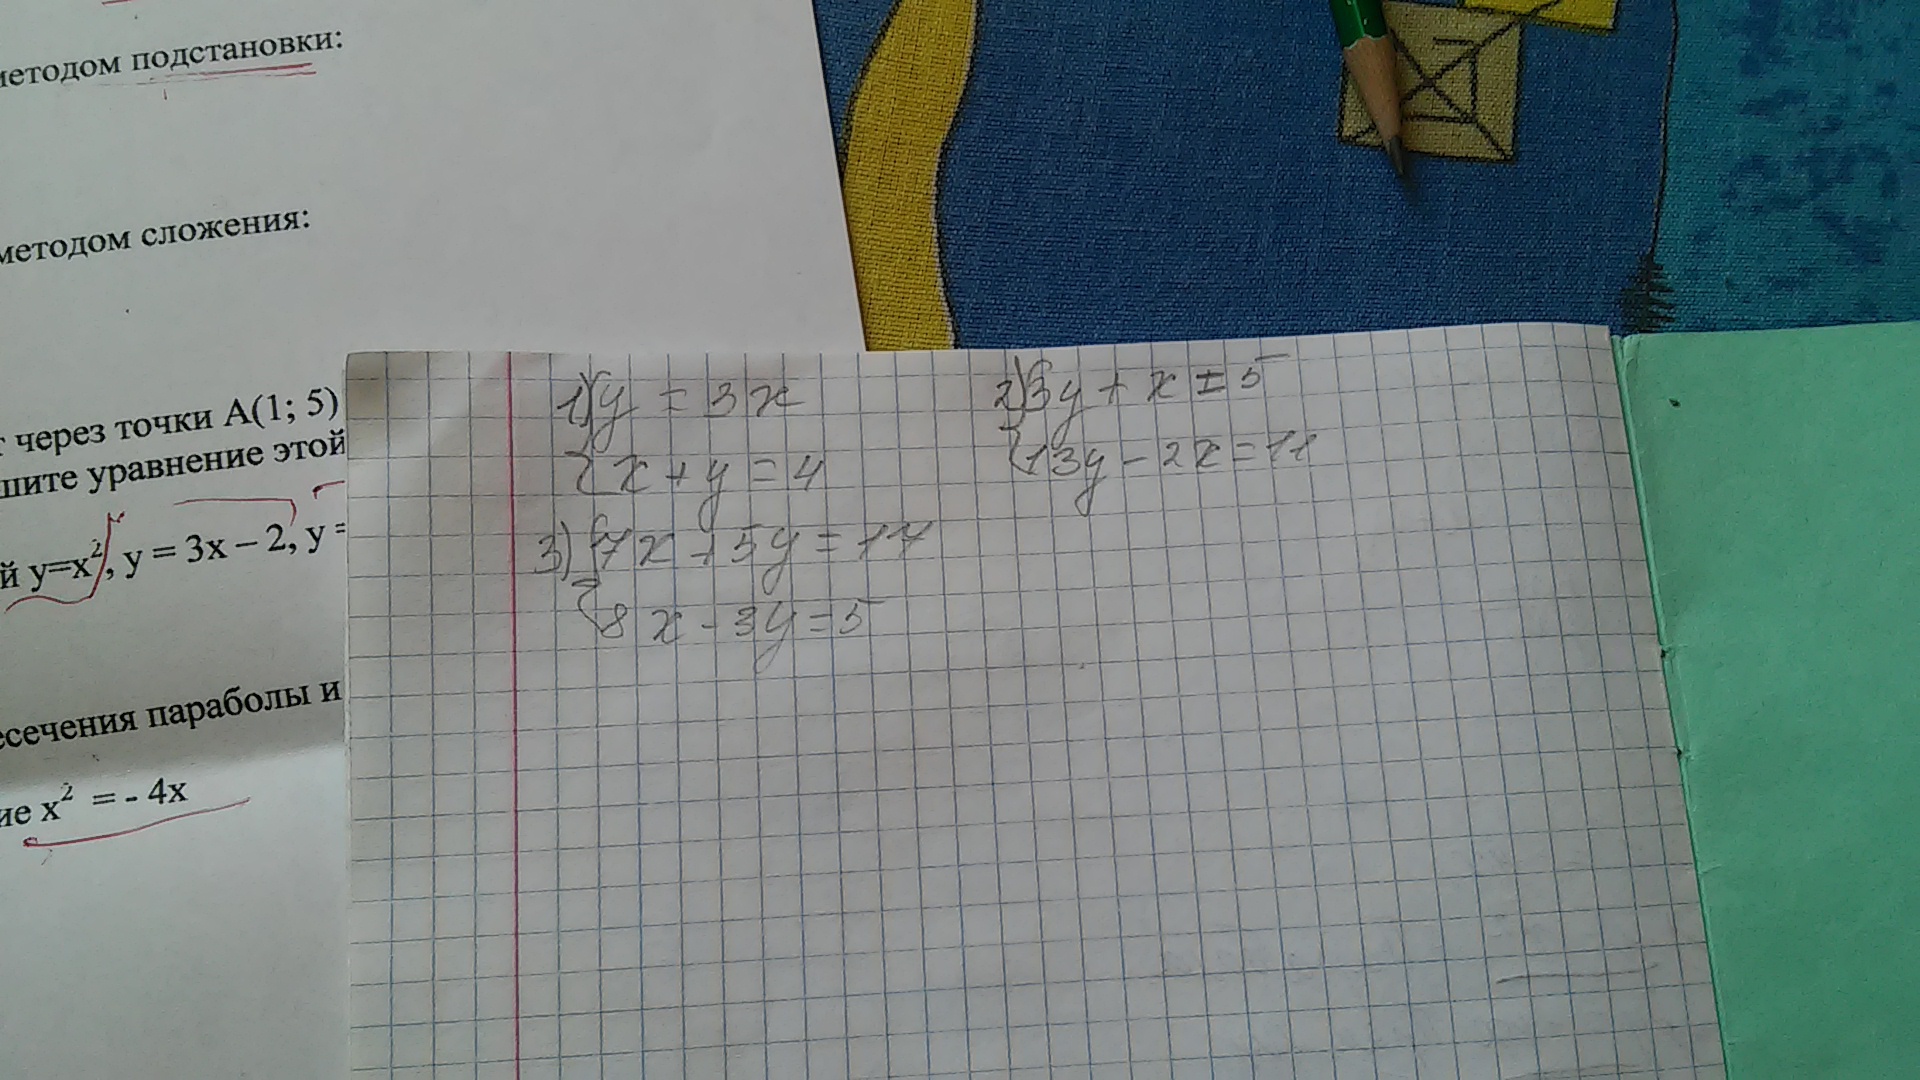 методом подстановки:
методом сложения:
через точки А(1; 5)
шите уравнение этой
й у=х², у = 3х – 2, у =
есечения параболы и
ие х² = - 4х
1) { y = 3x
{ x + y = 4
2) { 3y + x = 5
{ 13y - 2x = 11
3) { 7x + 5y = 17
{ 8x - 3y = 5